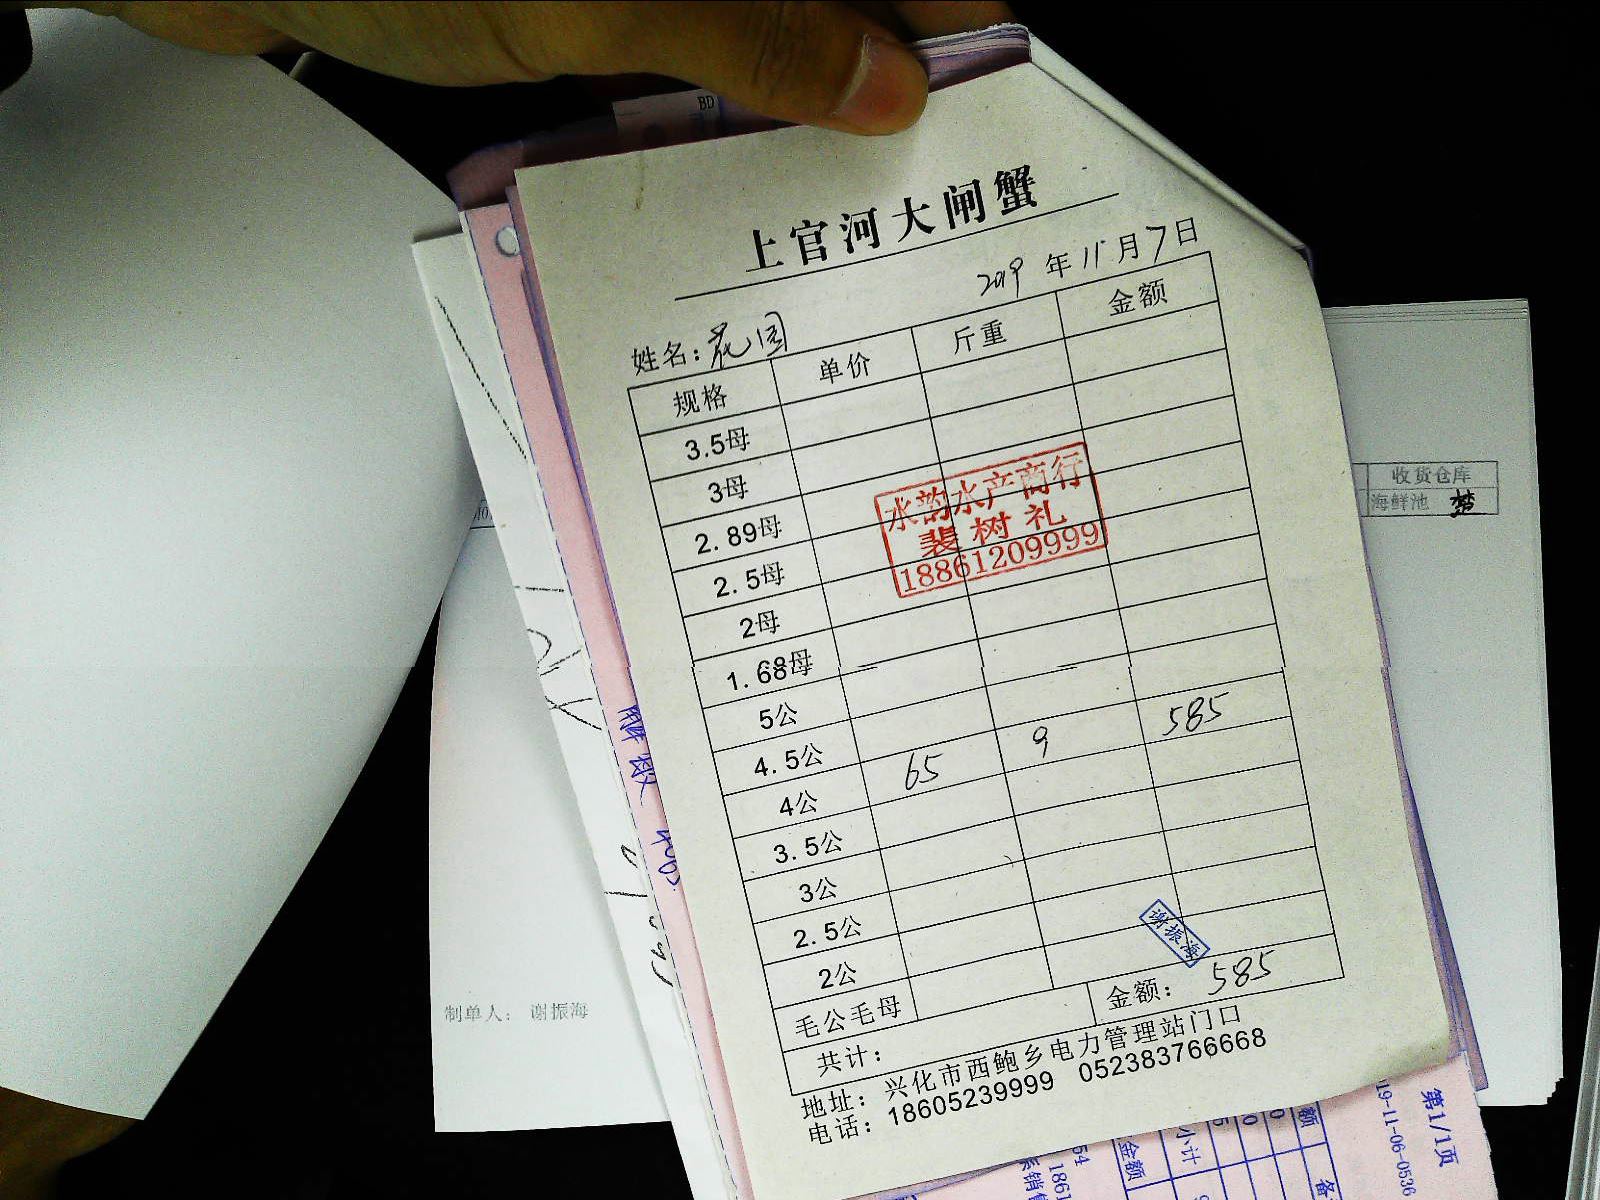 BD
上官河大闸蟹
2019 年 11 月 7 日
姓名: 花园
规格 单价 斤重 金额
3.5母
3母
2.89母
2.5母
2母
1.68母
5公
4.5公
4公 65 9 585
3.5公
3公
2.5公
2公
毛公毛母
共计: 金额: 585
地址: 兴化市西鲍乡电力管理站门口
电话: 18605239999 052383766668
水韵水产商行
裴树礼
18861209999
谢振海
收货仓库
海鲜池
制单人: 谢振海
第1/1页
19-11-06-0536
小计
金额